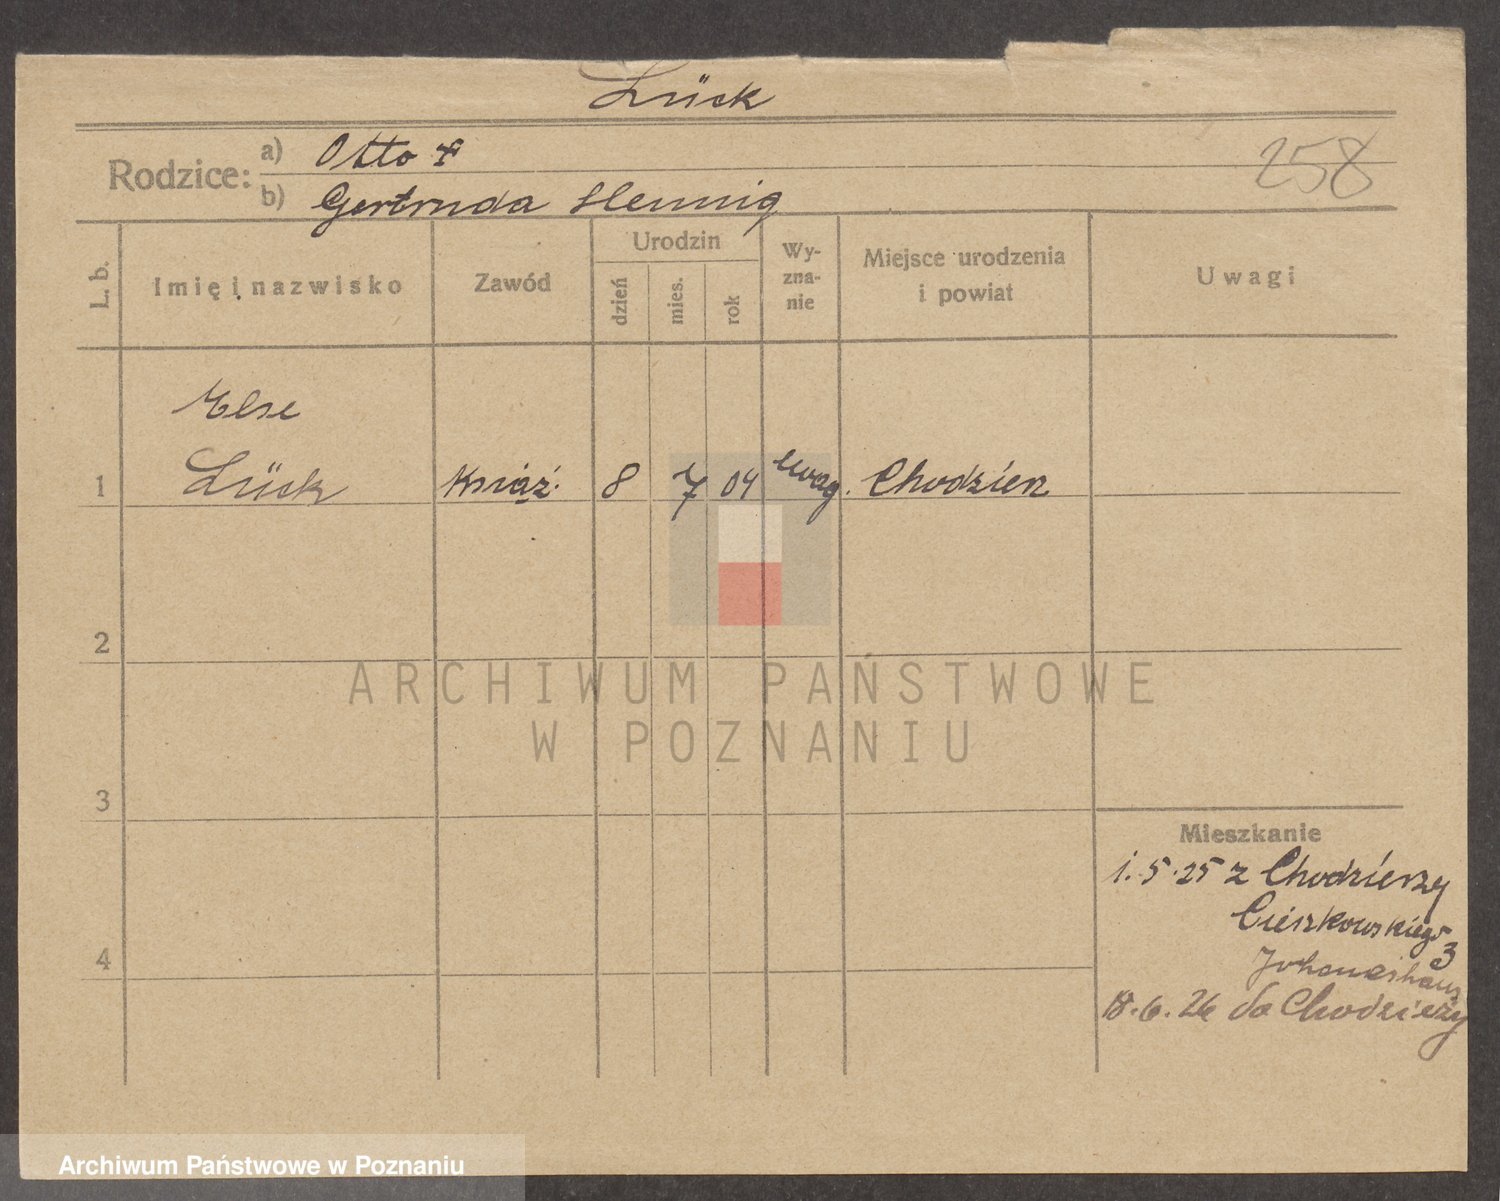 Lück
258
Rodzice:
a) Otto
b) Gertruda Hennig
L. b.
Imię i nazwisko
Zawód
Urodzin
dzień
mies.
rok
Wy-
zna-
nie
Miejsce urodzenia
i powiat
Uwagi
Else
1 Lück Książ. 8 7 04 ewag. Chodzież
2
3
4
Mieszkanie
1.5.25 z Chodzieży
Cieszkowskiego
3
Johaneshaus
18.6.26 do Chodzieży
ARCHIWUM PAŃSTWOWE
W POZNANIU
Archiwum Państwowe w Poznaniu